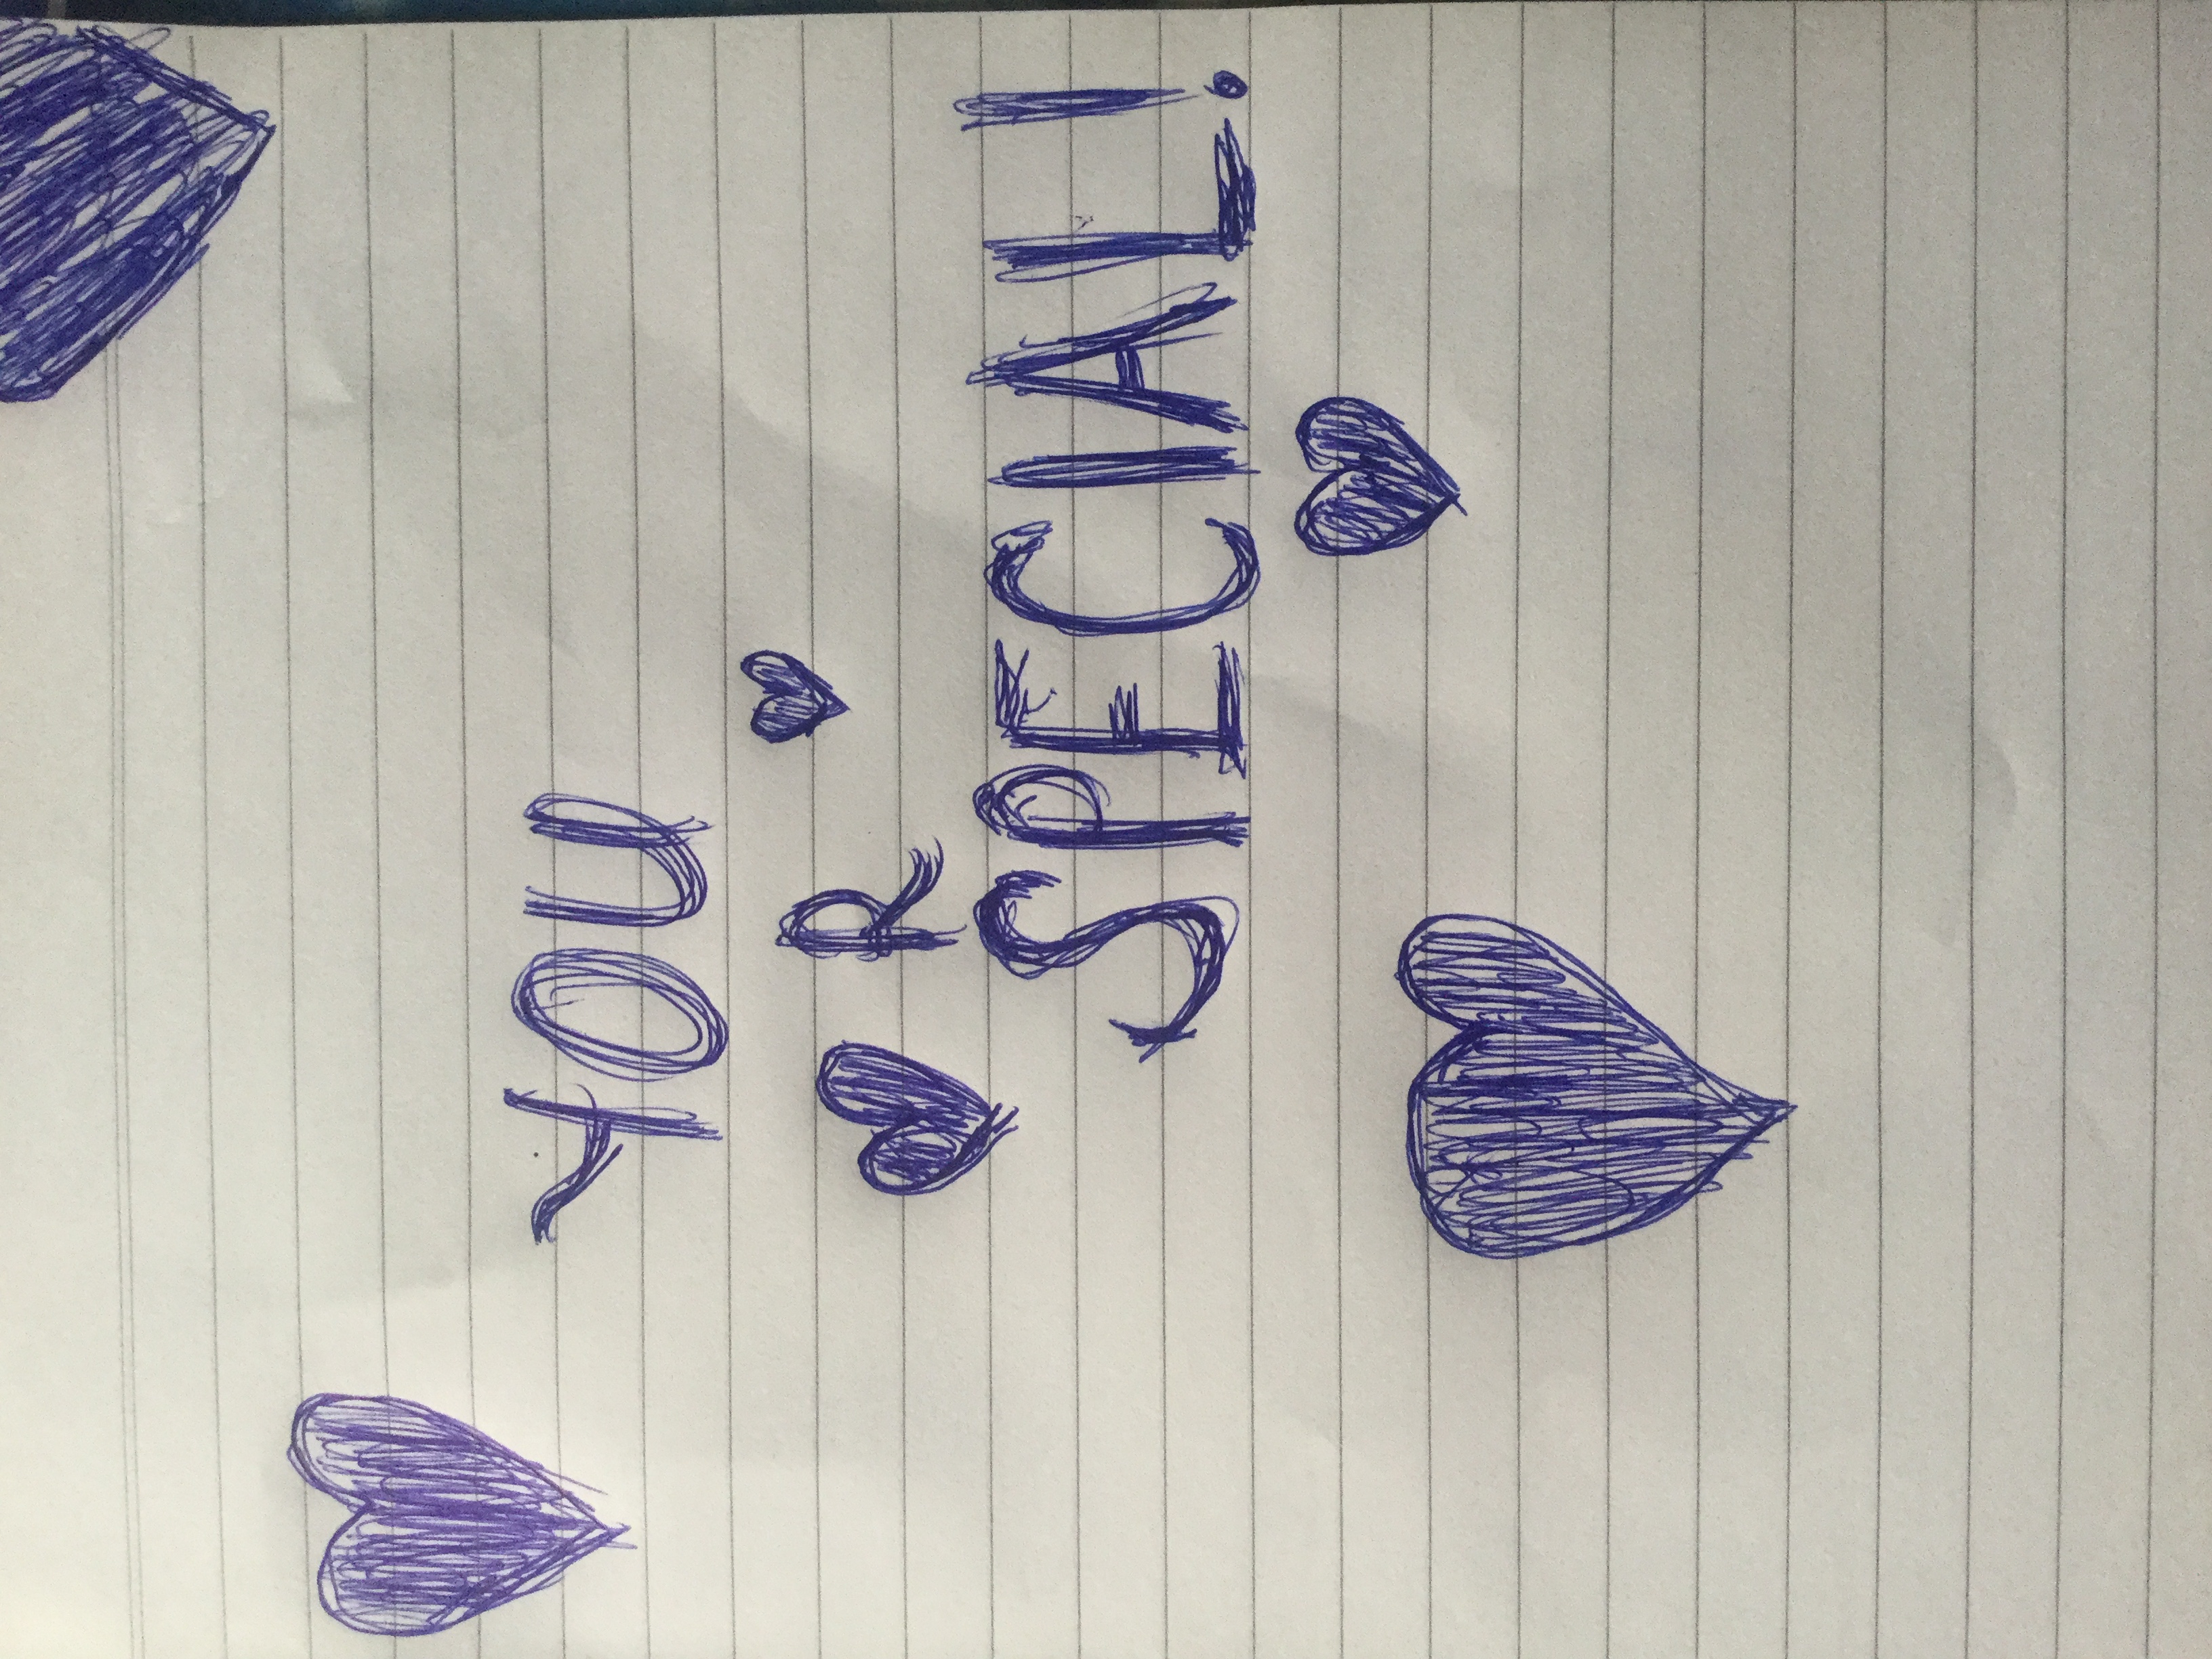 YOU
R
SPECIAL!